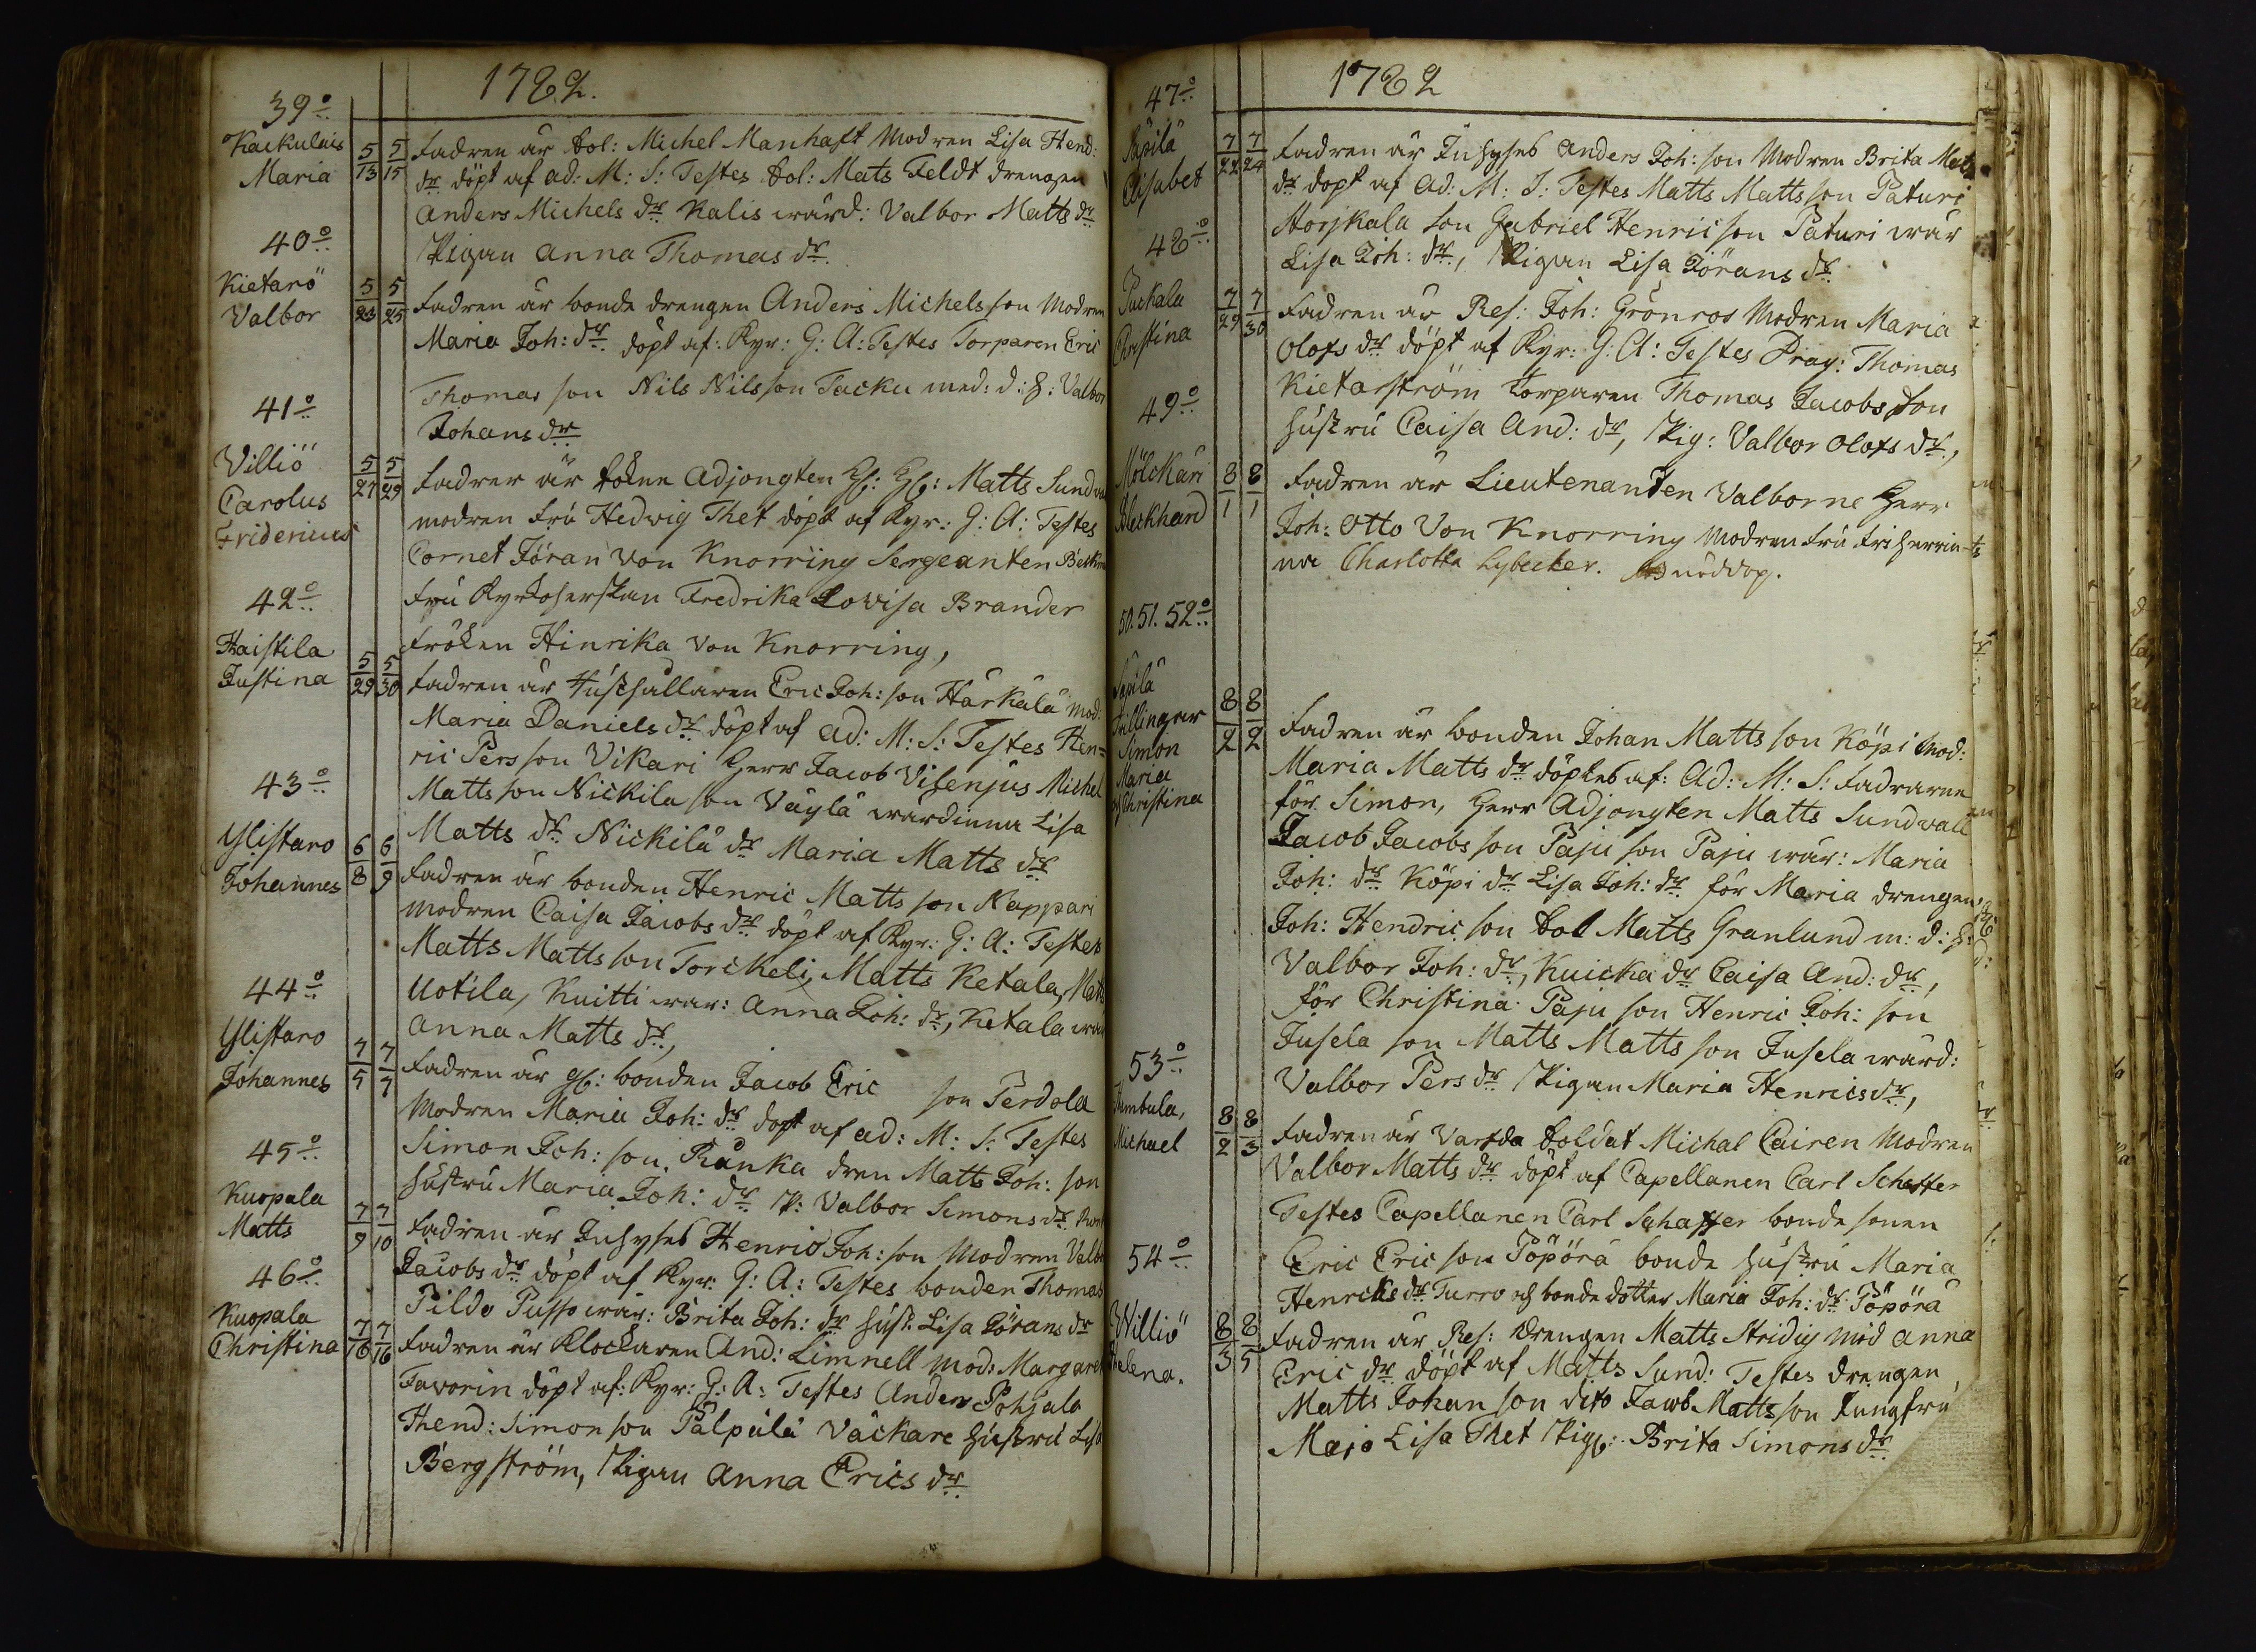 1782.
39o
Kackulais
Maria
5/13 5/15
Fadren är Sol: Michel Manhaft Modren Lisa Hend:
dr döpt af ad: M: S: Testes Sol: Mats Feldt drengen
Anders Michels dr Kalis wärd: Valbor Matts dr
Pigan Anna Thomas dr
40o
Kietarö
Valbor
5/23 5/25
Fadren är bonde drengen Anders Michels son Modren
Maria Joh: dr döpt af: Kyr: G: A: Testes Torparen Eric
Thomas son Nils Nils son Tacku med: d: H: Valbor
Johans dr
41o
Villiö
Carolus
Fridericus
5/27 5/29
Fadren är Adjongten Matts Sundva
modren Fru Hedwig Thet döpt af Kyr: G: A: Testes
Cornet Jöran Von Knorring Sergeanten
Fru Kyrkoherskan Fredrika Lovisa Brander
Fröken Hinrika von Knorring,
42o
Haistila
Justina
5/29 5/30
Fadren är Hushållaren Eric Joh: son Härkälä mod:
Maria Daniels dr döpt af Ad: M: S: Testes Hen=
ric Pers son Vikari Herr Jacob Vilenjus Michel
Matts son Nickila son Väylä wärdinna Lisa
Matts dr Nickilä dr Maria Matts dr
43o
Ylistaro
Johannes
6/8 6/9
Fadren är bonden Henric Matts son Nappari
modren Caisa Jacobs dr döpt af Kyr: G: A: Testes
Matts Matts son Torckeli, Matts Ketala, Matts
Uotila, Kuitti wär: Anna Joh: dr, Ketala wär
Anna Matts dr,
44o
Ylistaro
Johannes
7/5 7/7
Fadren är bonden Jacob Eric son Perdola
Modren Maria Joh: dr döpt af ad: M: S: Testes
Simon Joh: son, Ränka dren Matts Joh: son
hustru Maria Joh: dr P: Valbor Simons dr
45o
Kuopala
Matts
7/9 7/10
Fadren är Inhyses Henric Joh: son Modren Valbor
Jacobs dr döpt af Kyr: G: A: Testes bonden Thomas
Pildo Pusso wär: Brita Joh: dr hust. Lisa Jörans dr
46o
Kuopala
Christina
7/16 7/16
Fadren är Klockaren And: Limnell Mod: Margaret
Favorin döpt af: Kyr: G: A: Testes Anders Pohjala
Hend: Simon son Pälpälä Väckare hustru Lisa
Bergström, Pigan Anna Erics dr
1782
47o
Säpilä
Elisabet
7/22 7/24
Fadren är Inhyses Anders Joh: son Modren Brita Mats
dr döpt af Ad: M: S: Testes Matts Matts son Paturi
Horjkala son Gabriel Henric son Paturi wär
Lisa Joh: dr, Pigan Lisa Jörans dr
48o
Purkala
Christina
7/29 7/30
Fadren är Res: Joh: Grönros Modren Maria
Olofs dr döpt af Kyr: G: A: Testes Drag: Thomas
Kietarström Torparen Thomas Jacobs son
hustru Caisa And: dr, Pig: Valbor Olofs dr,
49o
Mölckäri
8/1 8/1
Fadren är Lieutenanten Valborne Herr
Joh: Otto Von Knorring Modren Fru Friherrin-
na Charlotta Lybecker. nöddop.
50. 51. 52o
Säpilä
Trillingar
Simon
Maria
och Christina
8/2 8/2
Fadren är bonden Johan Matts son Köpi Mod:
Maria Matts dr döptes af: Ad: M: S: Fadrarne
för Simon, Herr Adjongten Matts Sundvall
Jacob Jacobs son Paju son Paju wär: Maria
Joh: dr Köpi dr Lisa Joh: dr för Maria drengen
Joh: Hendric son Sol Matts Granlund m: d: H:
Valbor Joh: dr, Kuicka dr Caisa And: dr,
för Christina Paju son Henric Joh: son
Jusela son Matts Matts son Jusela wärd:
Valbor Pers dr Pigan Maria Henrics dr,
53o
Michael
8/2 8/3
Fadren är Varfda Soldat Michal Cairen Modren
Valbor Matts dr döpt af Capellanen Carl Scheffer
Testes Capellanen Carl Schaffer bonde sonen
Eric Eric son Pöpörä bonde hustru Maria
Henriks dr Turro och bonde dotter Maria Joh: dr Pöpörä
54o
Villiö
Helena.
8/3 8/5
Fadren är Res: drengen Matts Stridig Mod Anna
Eric dr döpt af Matts Sund: Testes drengen
Matts Johan son dito Jacob Matts son Jungfru
Maja Lisa Thet Pig: Brita Simons dr